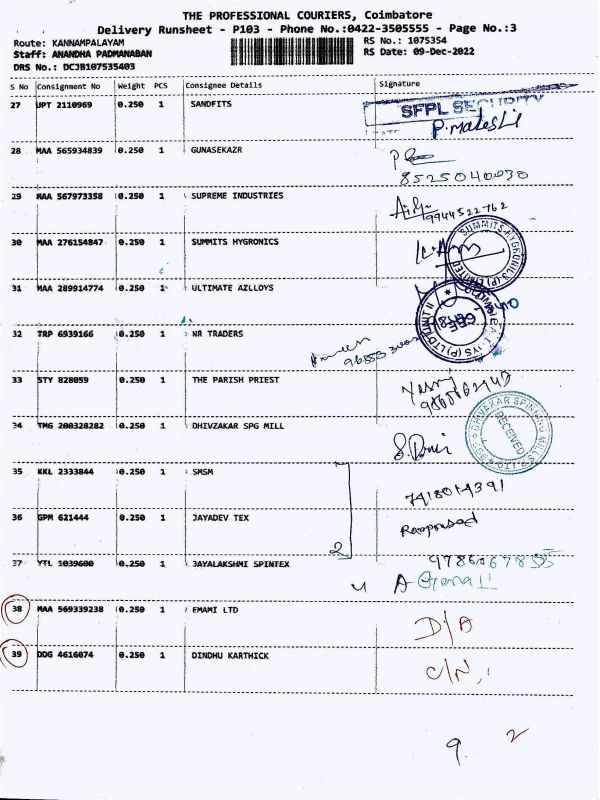 THE PROFESSIONAL COURIERS, Coimbatore
Delivery Runsheet - P103 - Phone No.:0422-3505555 - Page No.:3
Route: KANNAMPALAYAM
RS No.: 1075354
Staff: ANANDHA PADMANABAN
RS Date: 09-Dec-2022
DRS No.: DCJB107535403
S No Consignment No Weight PCS Consignee Details Signature
27 UPT 2110969 0.250 1 SANDFITS
SFPL SECURITY
28 MAA 565934839 0.250 1 GUNASEKAZR
8525040030
29 MAA 567973358 0.250 1 SUPREME INDUSTRIES
9944522762
30 MAA 276154847 0.250 1 SUMMITS HYGRONICS
SUMMITS HYGRONICS (P) LIMITED
31 MAA 289914774 0.250 1 ULTIMATE AZLLOYS
32 TRP 6939166 0.250 1 NR TRADERS
33 STY 828059 0.250 1 THE PARISH PRIEST
34 TMG 200328282 0.250 1 DHIVZAKAR SPG MILL
RECEIVED
35 KKL 2333844 0.250 1 SMSM
7418014391
36 GPM 621444 0.250 1 JAYADEV TEX
2
37 YTL 1039600 0.250 1 JAYALAKSHMI SPINTEX
38 MAA 569339238 0.250 1 EMAMI LTD
D/A
39 DDG 4616074 0.250 1 DINDHU KARTHICK
C/N
9 2